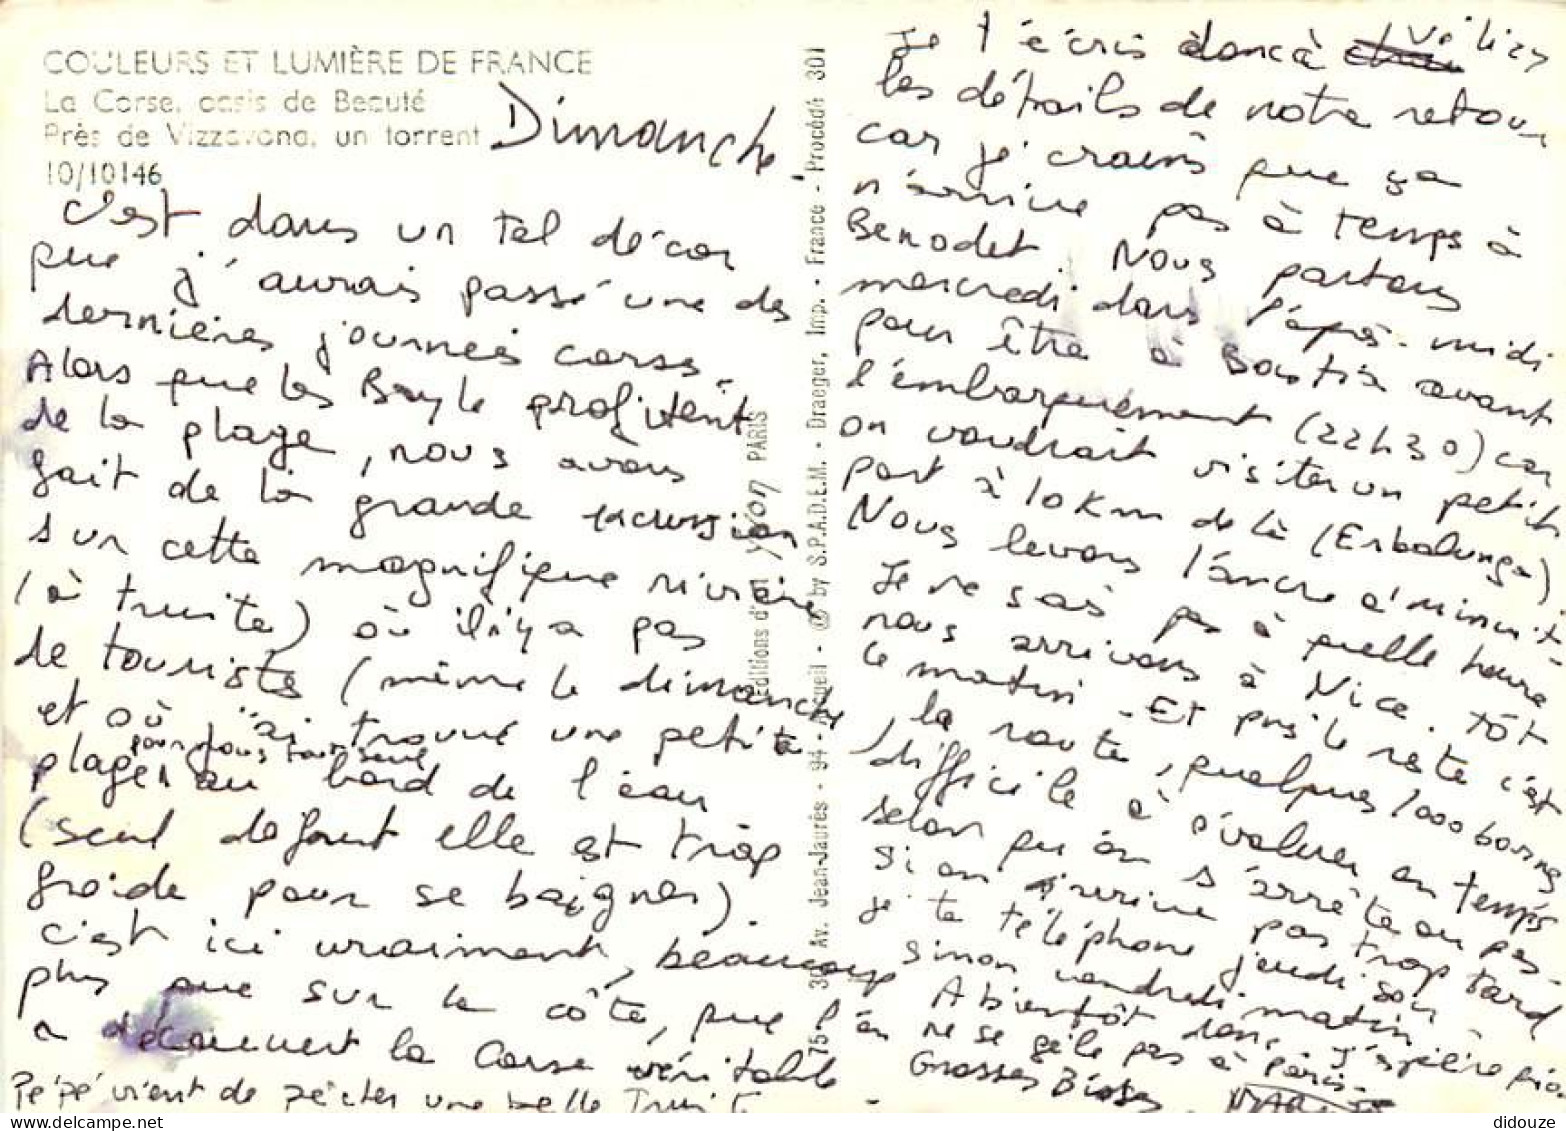 COULEURS ET LUMIÈRE DE FRANCE
La Corse, oasis de Beauté
Près de Vizzavona, un torrent
10/10146
Dimanche.
C'est dans un tel décor
que j'aurais passé une des
dernières journées corses.
Alors que les Bayle profitent
de la plage, nous avons
fait de la grande excursion
sur cette magnifique rivière
(à truite) où il n'y a pas
de touristes (même le dimanche
et où j'ai trouvé une petite
pour nous tout seuls
plage au bord de l'eau
(seul défaut elle est trop
froide pour se baigner).
C'est ici vraiment, beaucoup
plus que sur la côte, que l'on
a découvert la Corse véritable
Pépé vient de pêcher une belle truite
Editions d'art YVON PARIS
75 - 30 Av. Jean-Jaurès - 94 - Arcueil - @ by S.P.A.D.E.M. - Draeger, Imp. - France - Procédé 301
Je t'écris donc à Vélizy
les détails de notre retour
car je crains que ça
n'arrive pas à temps à
Benodet. Nous partons
mercredi dans l'après-midi
pour être à Bastia avant
l'embarquement (22h30) car
on voudrait visiter un petit
port à 10 Km de là (Erbalunga).
Nous levons l'ancre à minuit.
Je ne sais pas à quelle heure
nous arrivons à Nice. Tôt
le matin. Et puis le reste c'est
la route, quelques 1000 bornes
difficile à évaluer en temps
selon qu'on s'arrête ou pas.
Si on arrive pas trop tard
je te téléphone jeudi soir
sinon vendredi matin
A bientôt donc, j'espère que
l'on ne se gèle pas à Paris.
Grosses Bises.
didouze